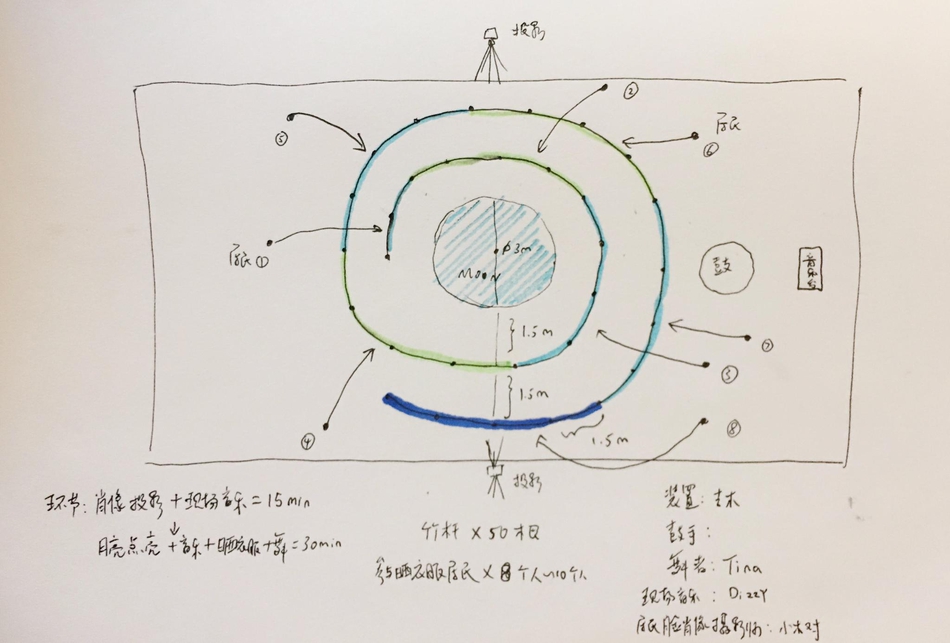 投影
②
⑤
居民
⑥
居民①
φ3m
MOON
鼓
音乐台
1.5m
⑦
1.5m
③
④
1.5m
⑧
投影
环节: 肖像投影+现场音乐=15min
月亮点亮+音乐+晒衣服+舞=30min
竹杆×50根
参与晒衣服居民×8个人~10个人
装置: 木
鼓手:
舞者: Tina
现场音乐: Dizzy
居民脸肖像摄影师: 小木对